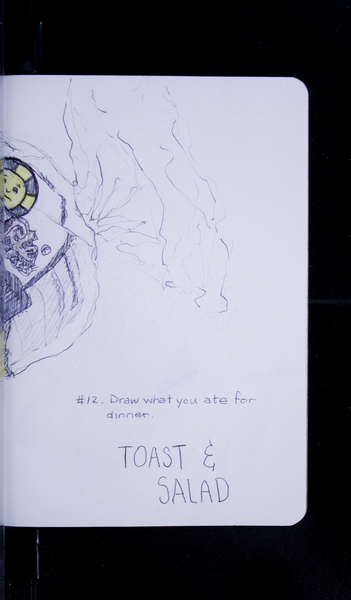 #12. Draw what you ate for
dinner.
TOAST &
SALAD